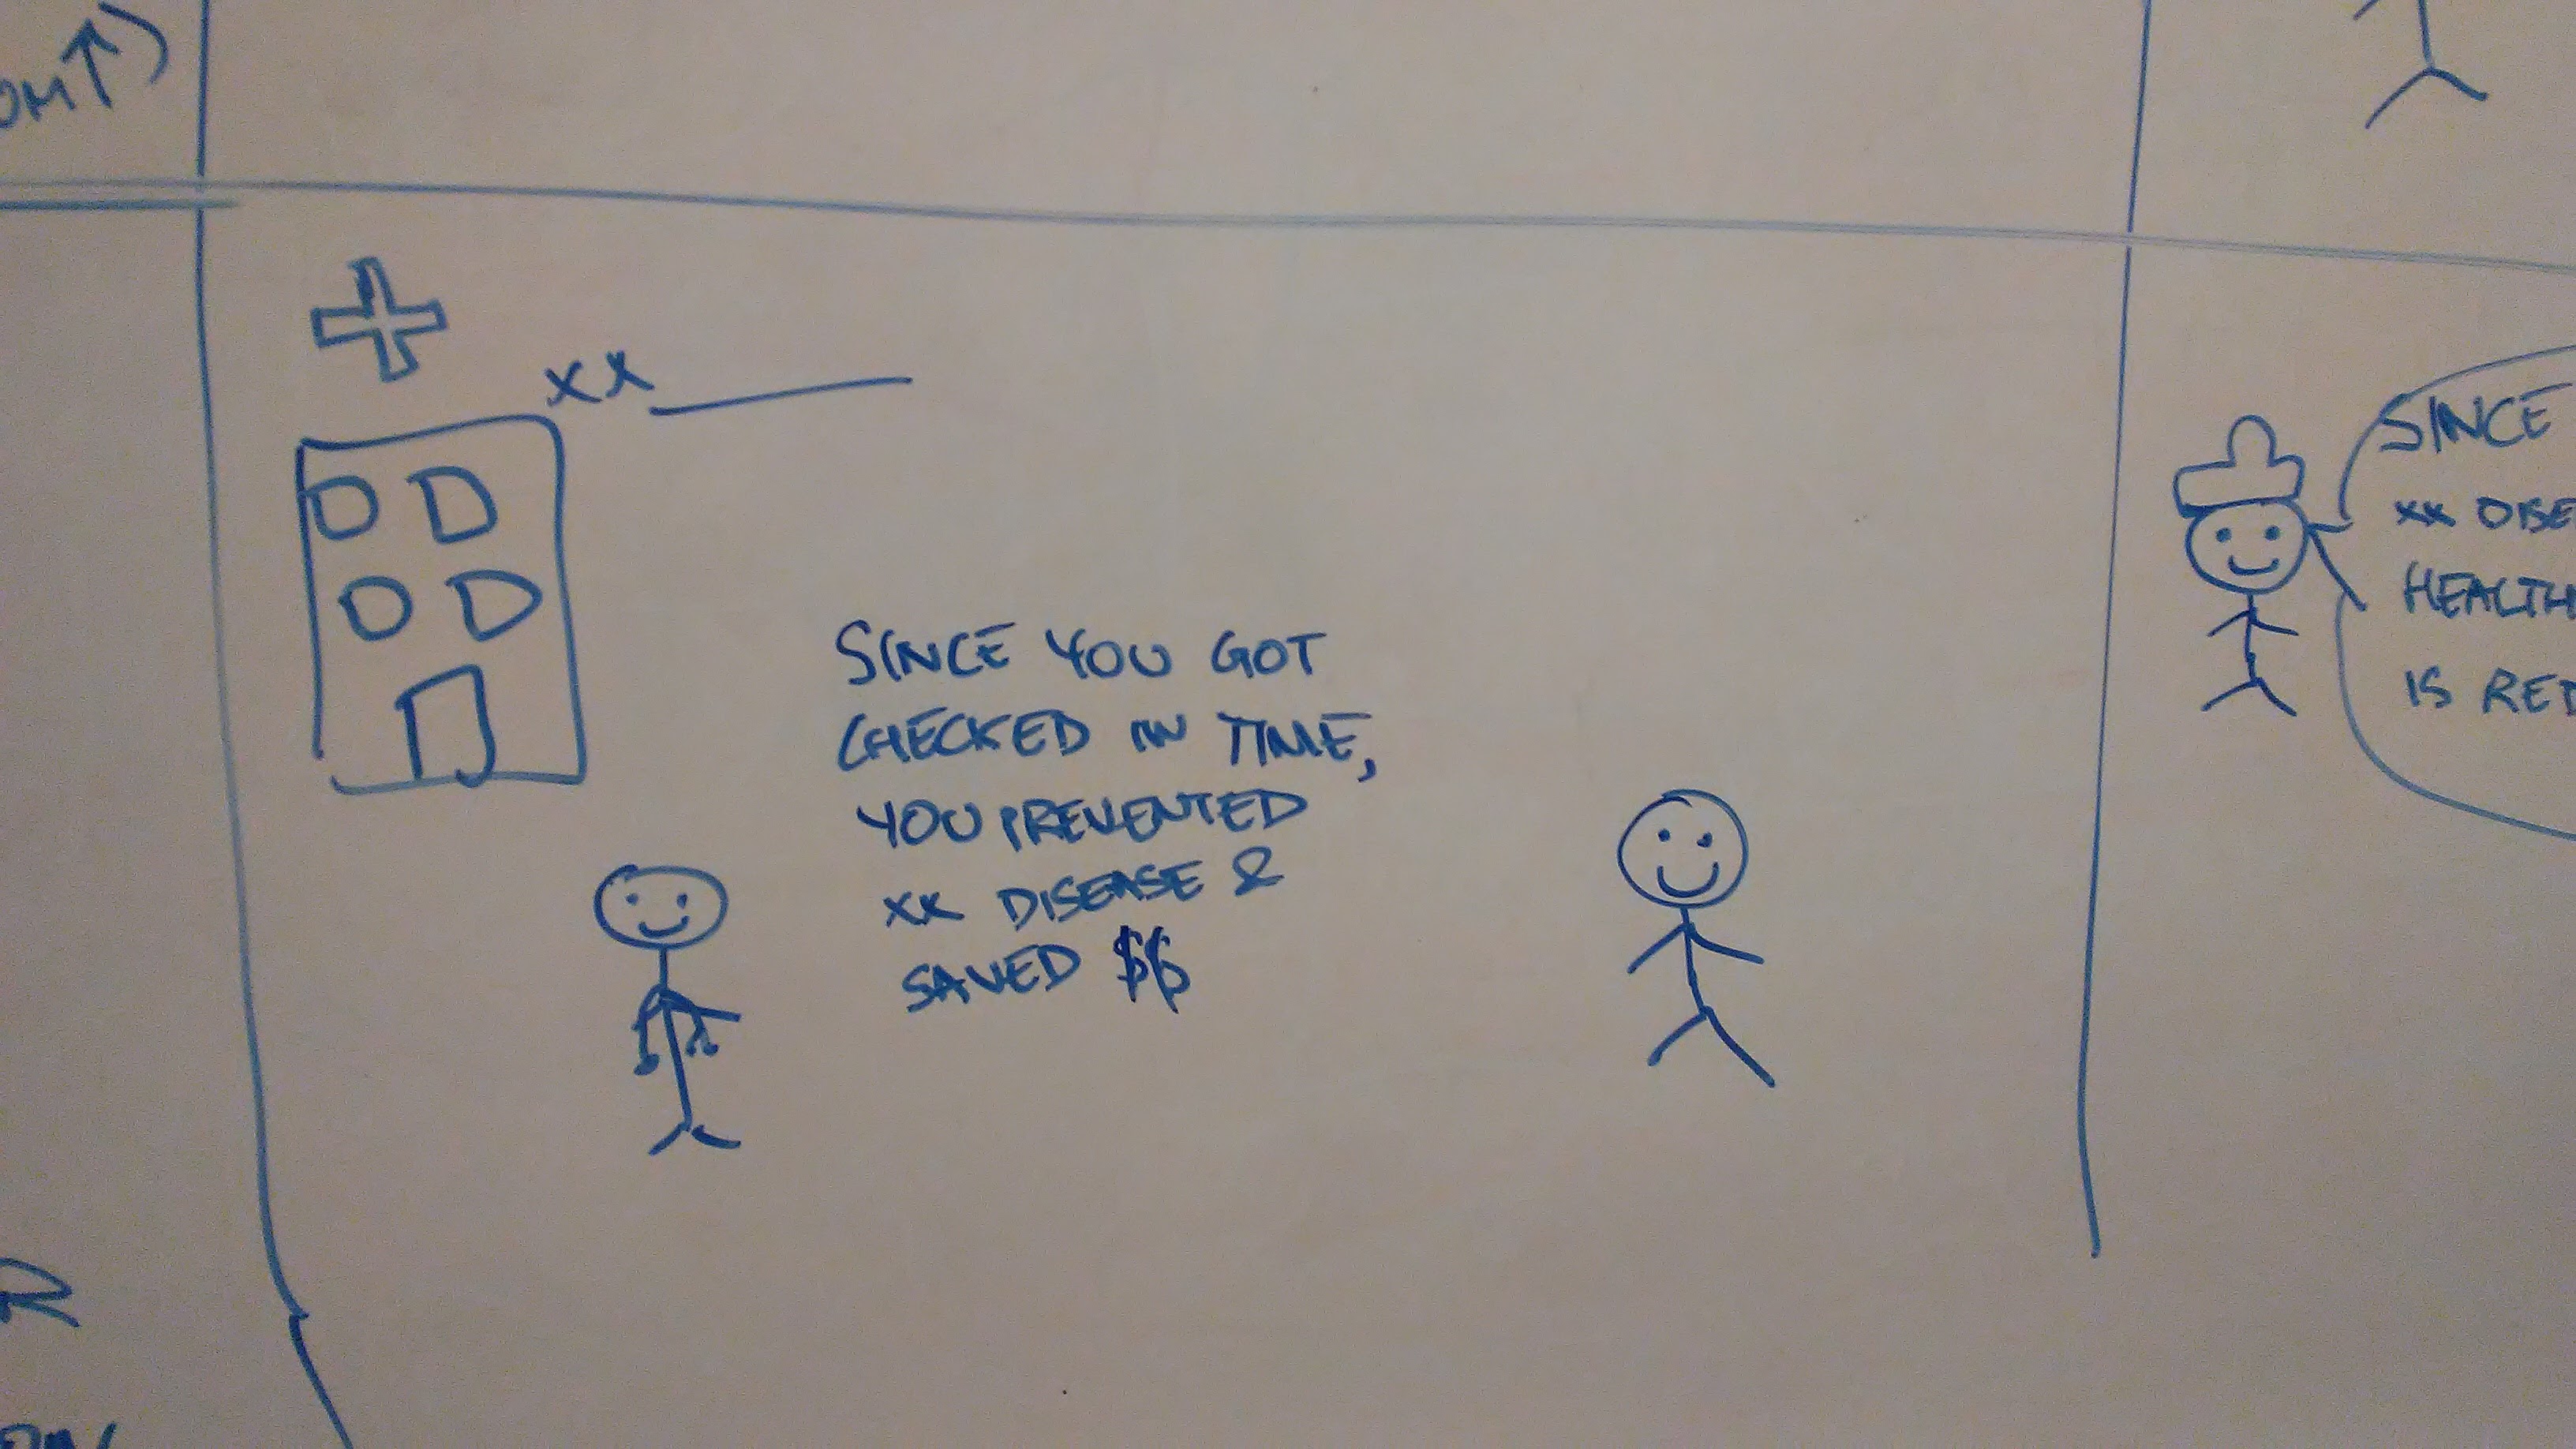 xx
SINCE YOU GOT
CHECKED IN TIME,
YOU PREVENTED
xx DISEASE &
SAVED $$
SINCE
xx
HEALTH
IS